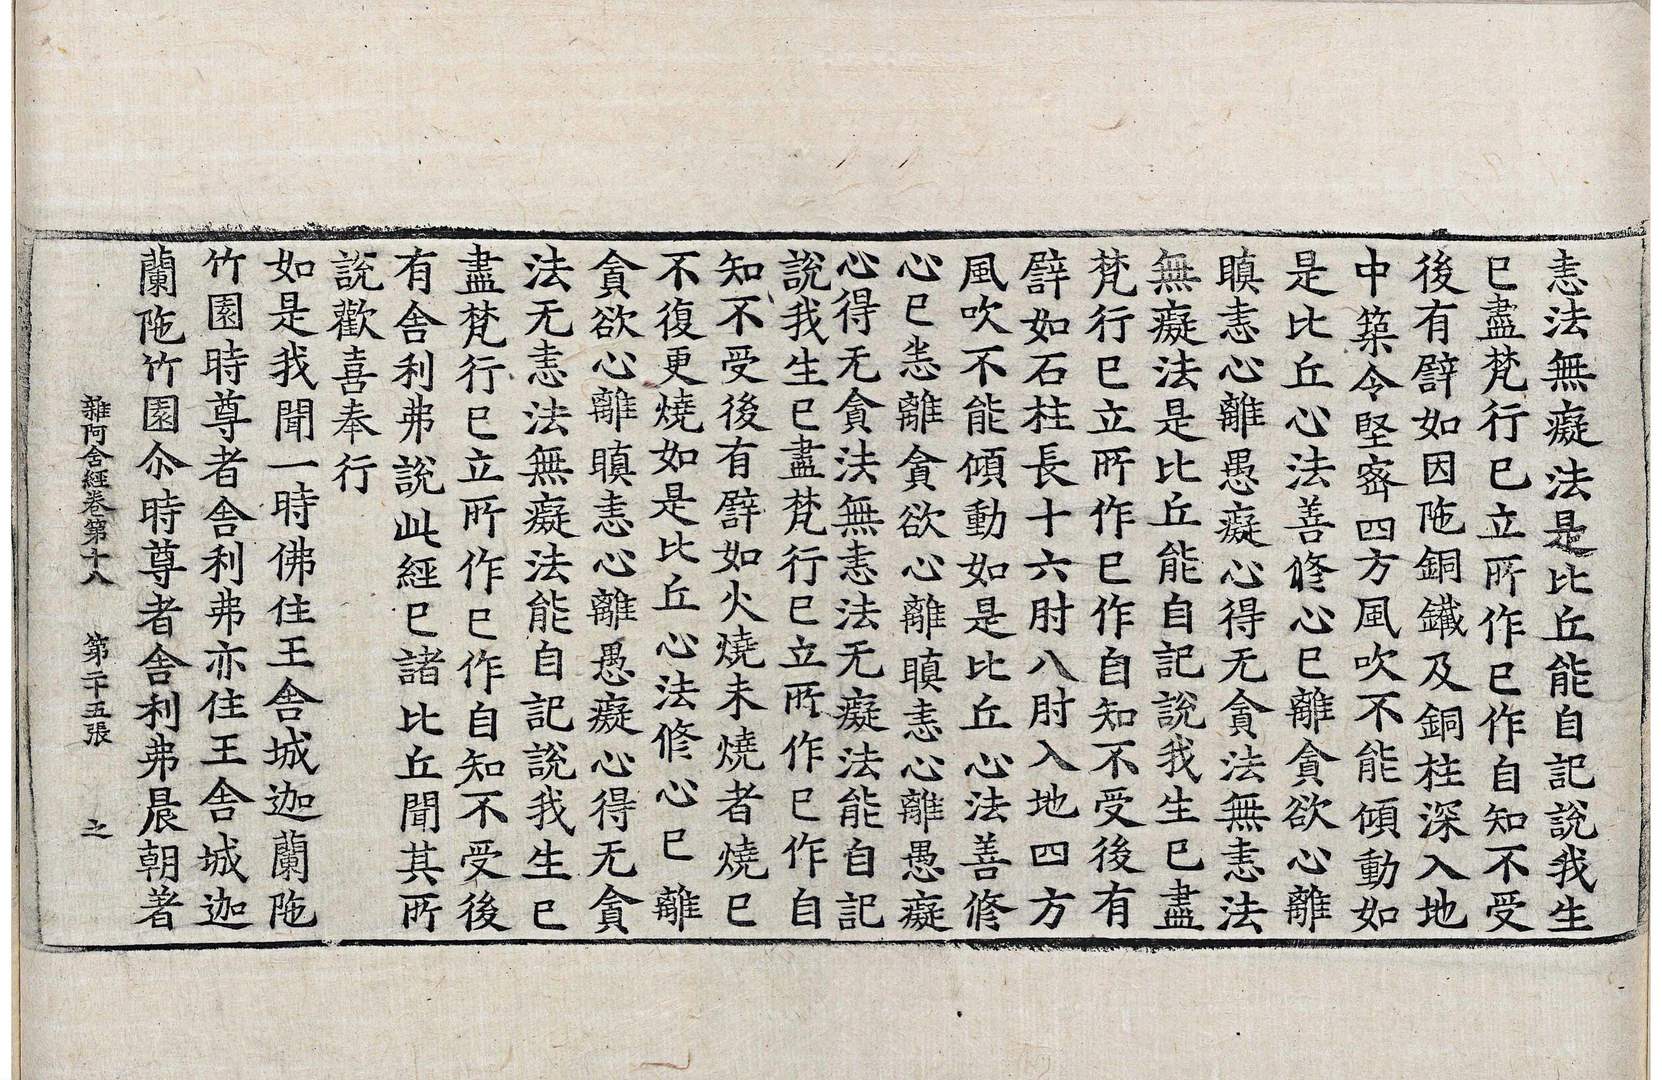 恚法無癡法是比丘能自記說我生
已盡梵行已立所作已作自知不受
後有譬如因陁銅鐵及銅柱深入地
中築令堅密四方風吹不能傾動如
是比丘心法善修心已離貪欲心離
瞋恚心離愚癡心得无貪法無恚法
無癡法是比丘能自記說我生已盡
梵行已立所作已作自知不受後有
譬如石柱長十六肘八肘入地四方
風吹不能傾動如是比丘心法善修
心已善離貪欲心離瞋恚心離愚癡
心得无貪法無恚法无癡法能自記
說我生已盡梵行已立所作已作自
知不受後有譬如火燒未燒者燒已
不復更燒如是比丘心法修心已離
貪欲心離瞋恚心離愚癡心得无貪
法无恚法無癡法能自記說我生已
盡梵行已立所作已作自知不受後
有舍利弗說此經已諸比丘聞其所
說歡喜奉行
如是我聞一時佛住王舍城迦蘭陁
竹園時尊者舍利弗亦住王舍城迦
蘭陁竹園尒時尊者舍利弗晨朝著
雜阿含經卷第十八 第二十五張 之